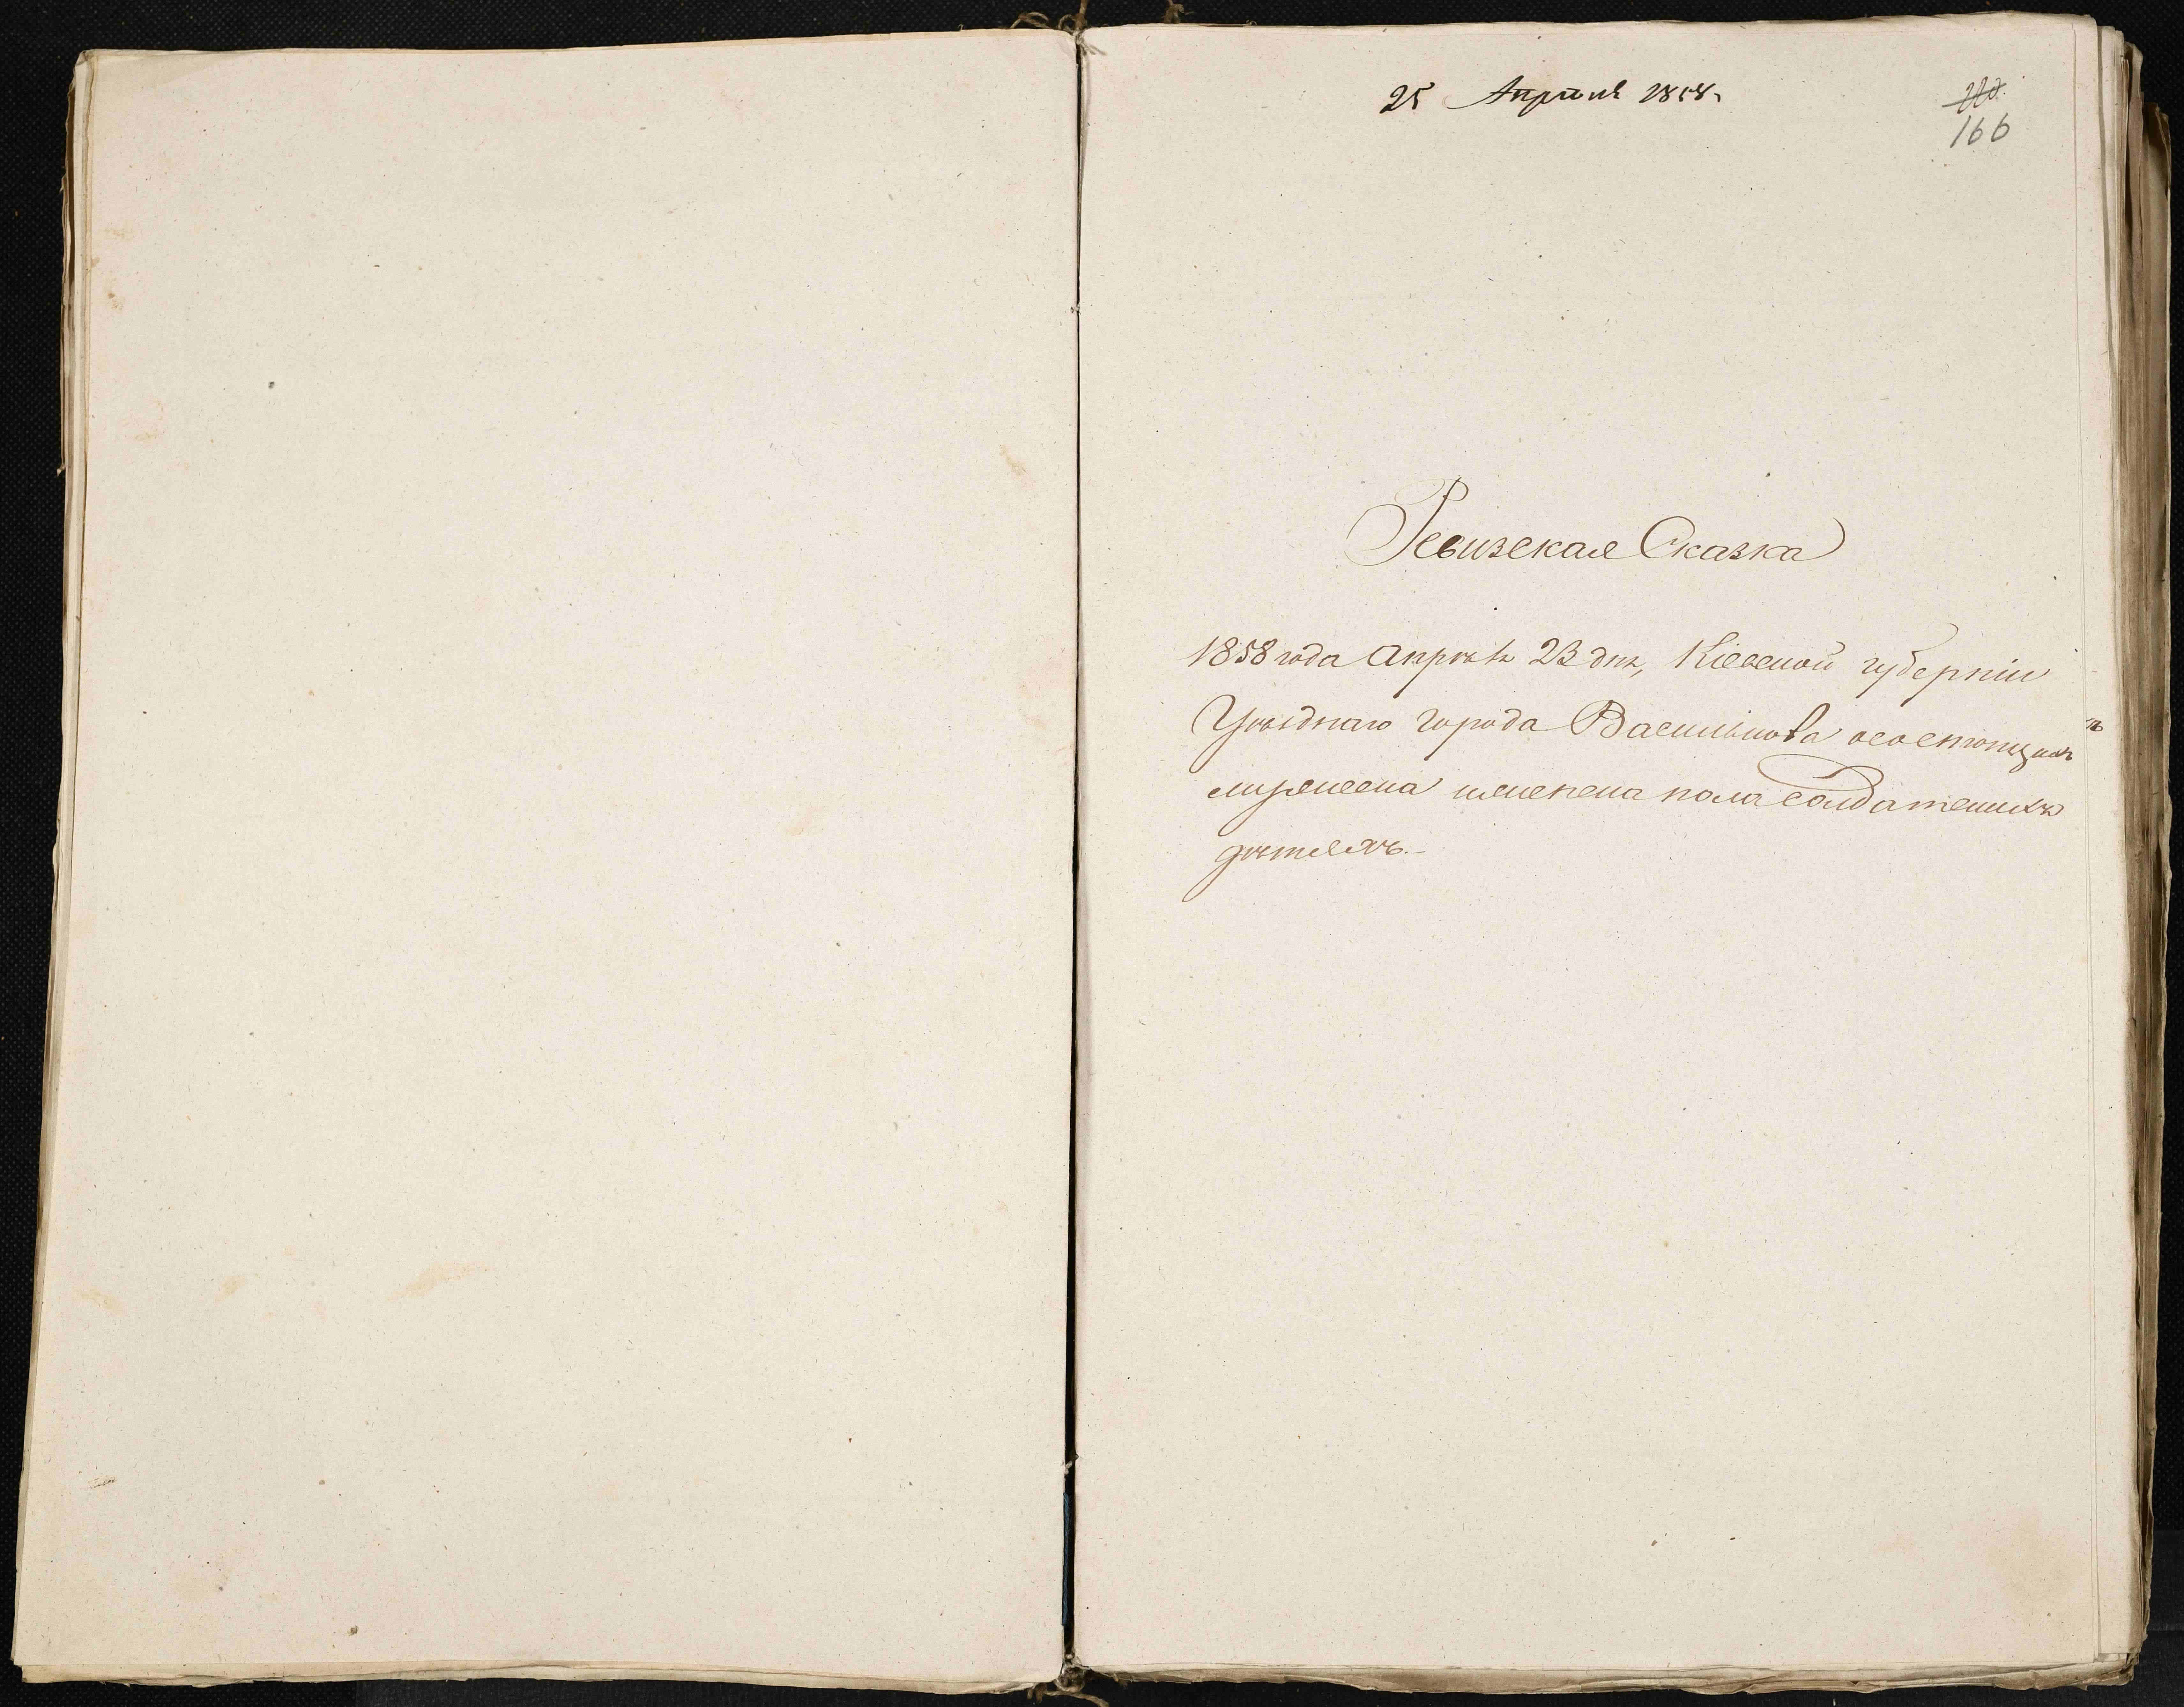 25 Апрѣля 1858.
166
Ревизская Сказка
1858 года Апрѣля 23 дня, Кіевской губерніи
Уѣзднаго города Василькова о состоящихъ
мужескаго и женскаго пола солдатскихъ
дѣтяхъ.-